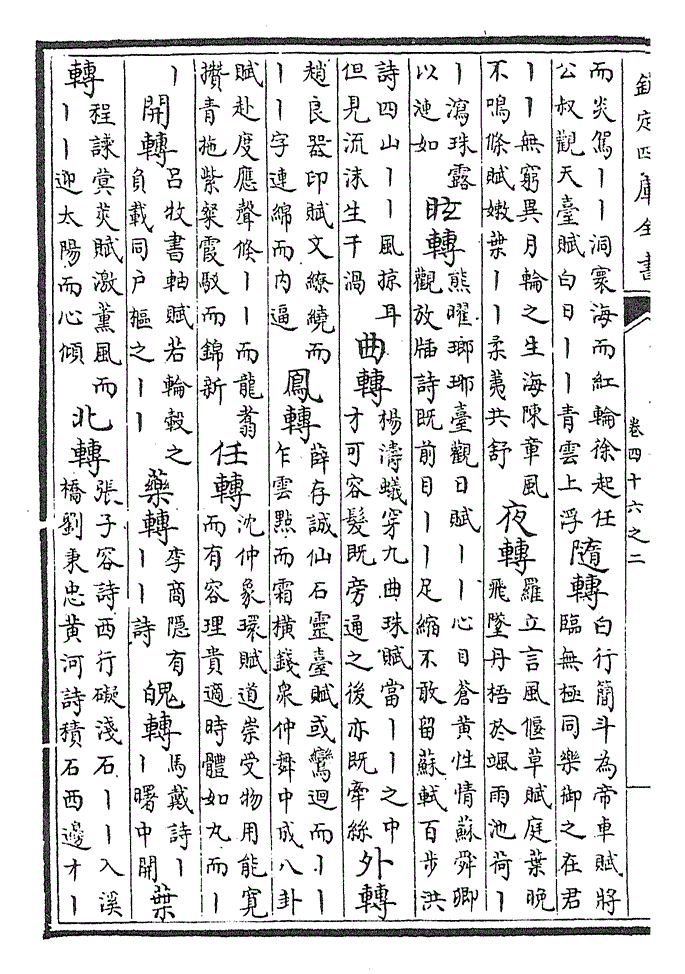 欽定四庫全書
卷四十六之二
而炎駕丨丨洞寰海而紅輪徐起任
公叔觀天臺賦白日丨丨青雲上浮
隨轉
白行簡斗為帝車賦將
臨無極同樂御之在君
丨丨無窮異月輪之生海陳章風
不鳴條賦嫩葉丨丨柔荑共舒
夜轉
羅立言風偃草賦庭葉晚
飛墜丹梧於颯雨池荷丨
丨瀉珠露
以漣如
眩轉
熊曜瑯琊臺觀日賦丨丨心目蒼黄性情蘇舜卿
觀放牐詩既前目丨丨足縮不敢留蘇軾百步洪
詩四山丨丨風掠耳
但見流沫生千渦
曲轉
楊濤蟻穿九曲珠賦當丨丨之中
才可容髮既旁通之後亦既牽絲
外轉
趙良器印賦文繚繞而
丨丨字連綿而内逼
鳳轉
薛存誠仙石靈臺賦或鸞迴而丨丨
乍雲點而霜橫錢衆仲舞中成八卦
賦赴度應聲倏丨丨而龍翥
攢青拖紫粲霞駮而錦新
任轉
沈仲象環賦道崇受物用能寛
而有容理貴適時體如丸而丨
丨
開轉
吕牧書軸賦若輪轂之
負載同户樞之丨丨
藥轉
李商隱有
丨丨詩
魄轉
馬戴詩丨
丨曙中開
葉
轉
程諫蓂莢賦激薰風而
丨丨迎太陽而心傾
北轉
張子容詩西行礙淺石丨丨入溪
橋劉秉忠黄河詩積石西邊才丨